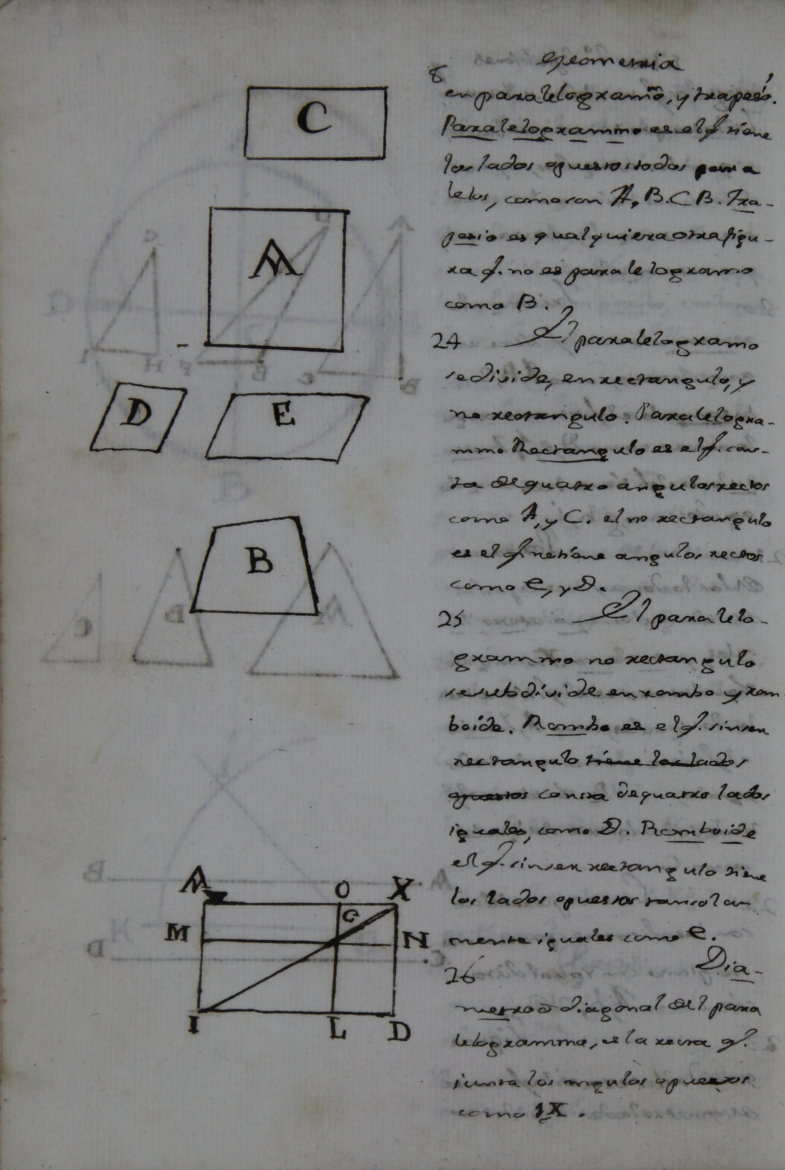 8 Geometria
en paralelogramo, y trapeço.
Paralelogrammo es el q. tiene
los lados opuestos todos para
lelos, como son A, B. C B. Tra-
pesio es qualquiera otra figu-
ra q. no es paralelogramo
como B.
24 El paralelogramo
se divide, en rectangulo, y
no rectangulo. Paralelogra-
mmo Rectangulo es el q. cons-
ta de quatro angulos rectos
como A, y C. el no rectangulo
es el q. no tiene angulos rectos
como E, y D.
25 El paralelo-
grammo no rectangulo
se subdivide en rombo y rom
boide. Rombo es el q. sin ser
rectangulo tiene los lados
opuestos consta de quatro lados
iguales, como D. Romboide
el q. sin ser rectangulo tiene
los lados opuestos tan solam
mente iguales como E.
26 Dia-
metro o diagonal del para
lelogrammo, es la recta q.
junta los angulos opuestos
como IX.
C
A
D E
B
A O X
G
M N
I L D